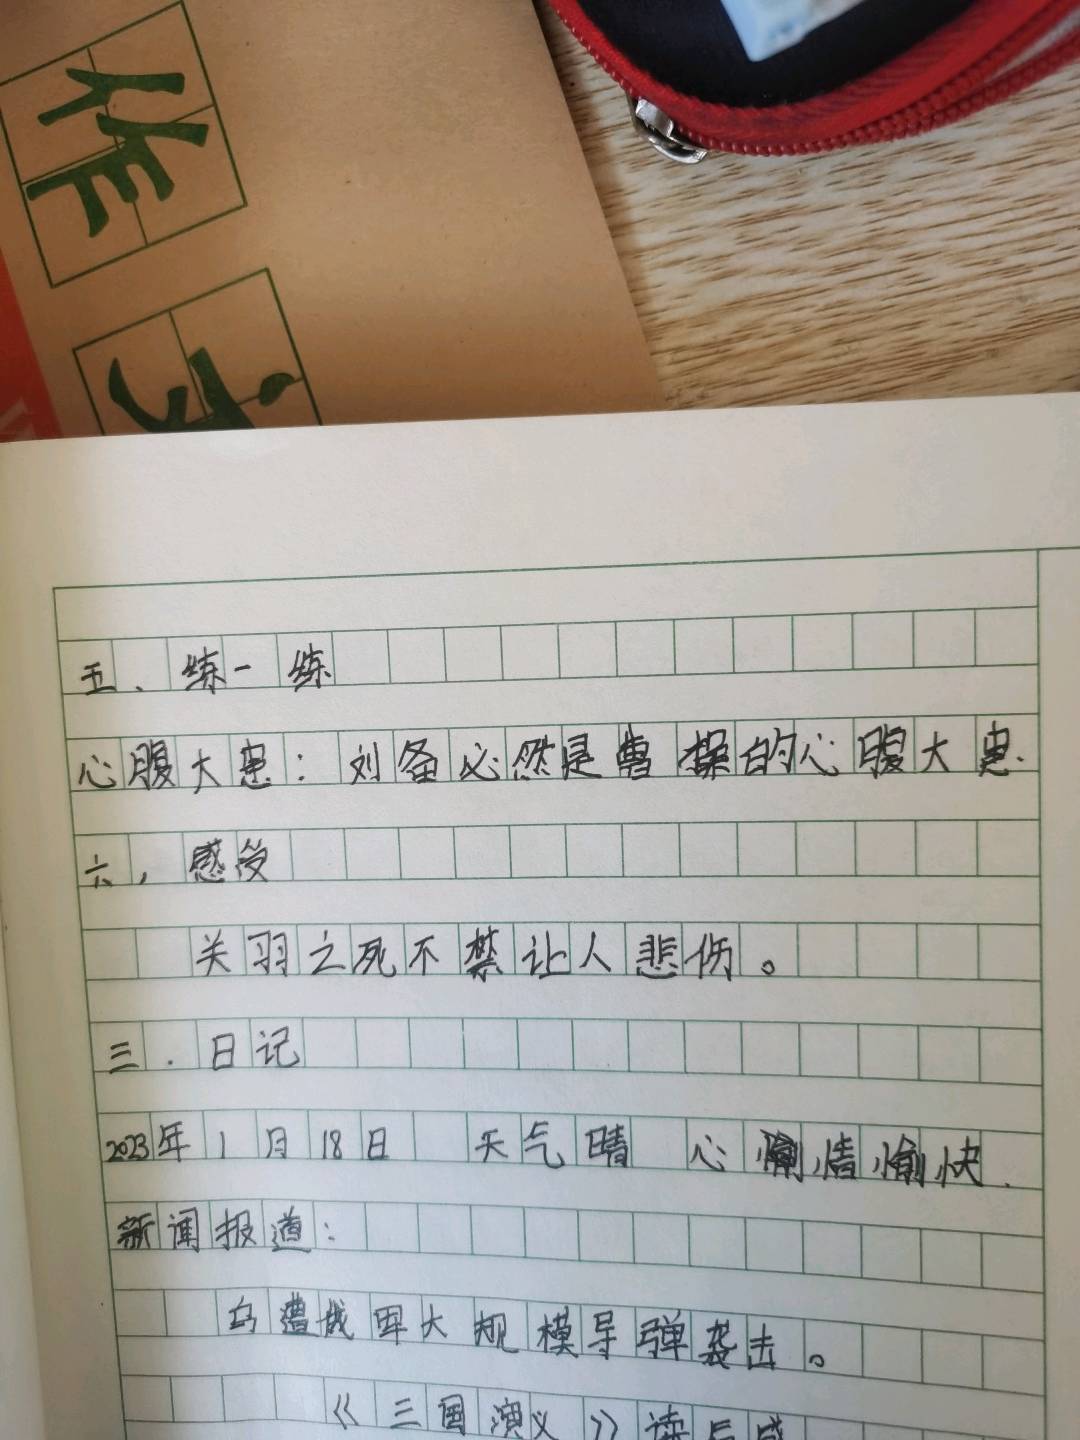 作
文
五、练一练
心腹大患：刘备必然是曹操的心腹大患.
六，感受
关羽之死不禁让人悲伤。
三.日记
2023年1月18日 天气晴 心情愉快.
新闻报道：
乌遭俄军大规模导弹袭击。
《三国演义》读后感